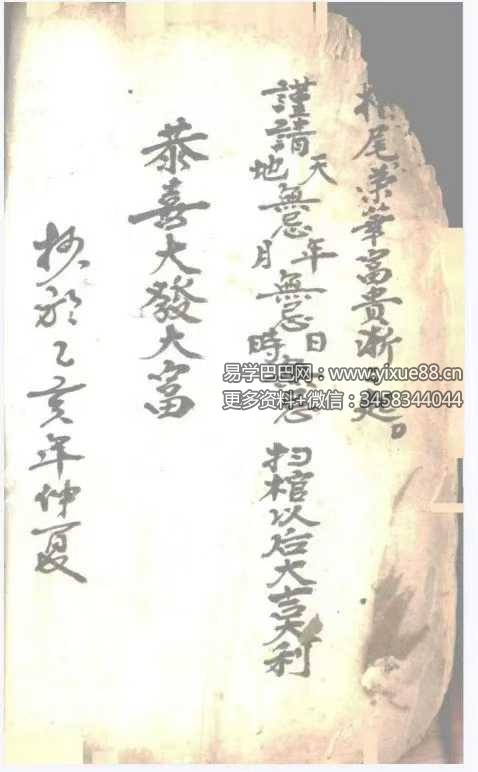 尾荣華富貴漸日起。
謹請天地無忌年月無忌日時無忌 扫棺以后大吉大利
恭喜大發大富
抄於乙亥年仲夏
易学巴巴网:www.yixue88.cn
更多资料+微信:3458344044